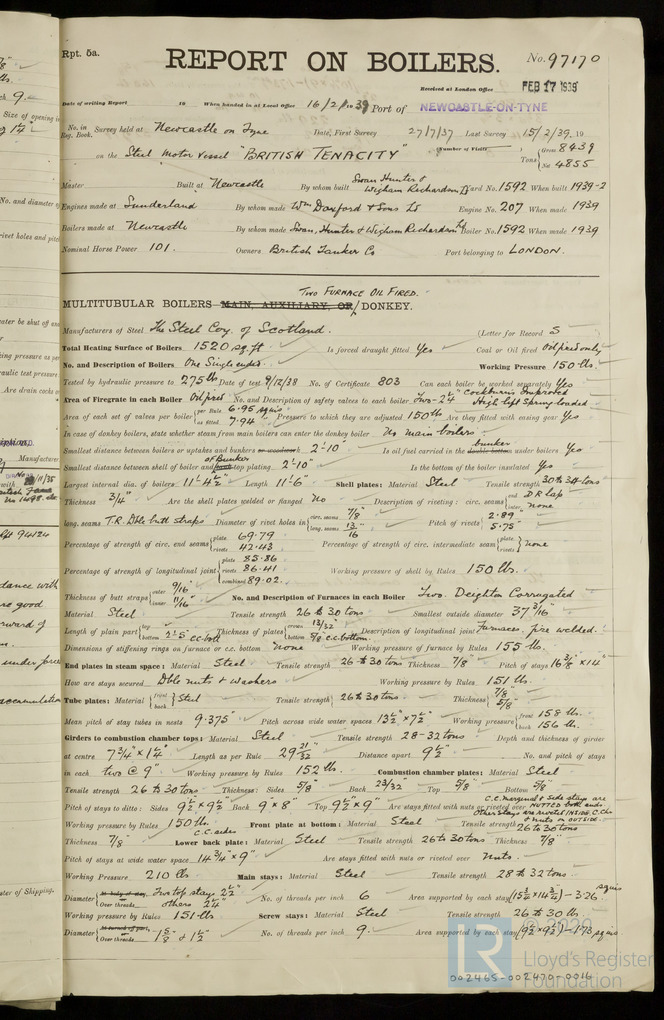 Rpt. 5a.
REPORT ON BOILERS.
No. 97170
Received at London Office FEB 17 1939
Date of writing Report 19 When handed in at Local Office 16/2/1939 Port of NEWCASTLE-ON-TYNE
No. in Reg. Book. Survey held at Newcastle on Tyne Date, First Survey 27/7/37 Last Survey 15/2/39. 19
on the Steel Motor Vessel "BRITISH TENACITY" (Number of Visits ) Tons { Gross 8439 Net 4855
Master Built at Newcastle By whom built Swan Hunter & Wigham Richardson Ld Yard No. 1592 When built 1939-2
Engines made at Sunderland By whom made Wm Doxford & Sons Ld Engine No. 207 When made 1939
Boilers made at Newcastle By whom made Swan, Hunter & Wigham Richardson Ld Boiler No. 1592 When made 1939
Nominal Horse Power 101. Owners British Tanker Co Port belonging to LONDON.
TWO FURNACE OIL FIRED.
MULTITUBULAR BOILERS MAIN, AUXILIARY, OR DONKEY.
Manufacturers of Steel The Steel Coy. of Scotland. (Letter for Record S
Total Heating Surface of Boilers 1520 sq. ft Is forced draught fitted Yes Coal or Oil fired Oil fired only
No. and Description of Boilers One Single ended Working Pressure 150 lbs.
Tested by hydraulic pressure to 275 lbs Date of test 9/12/38 No. of Certificate 803 Can each boiler be worked separately Yes
Area of Firegrate in each Boiler Oil fired No. and Description of safety valves to each boiler Two-2¼" "Cockburn's Improved High lift Spring loaded
Area of each set of valves per boiler { per Rule 6.95 sq ins as fitted 7.94 Pressure to which they are adjusted 150 lbs Are they fitted with easing gear Yes
In case of donkey boilers, state whether steam from main boilers can enter the donkey boiler No main boilers.
Smallest distance between boilers or uptakes and bunkers or woodwork 2'-10" Is oil fuel carried in the double bottom bunker under boilers Yes
Smallest distance between shell of boiler and tank top plating of Bunker 2'-10" Is the bottom of the boiler insulated Yes
Largest internal dia. of boilers 11'-4½" Length 11'-6" Shell plates: Material Steel Tensile strength 30 to 34 tons
Thickness ¾" Are the shell plates welded or flanged No Description of riveting: circ. seams { end D R lap inter. none
long. seams T.R. Dble butt straps Diameter of rivet holes in { circ. seams 7/8" long. seams 13/16 Pitch of rivets { 2.89" 5.75"
Percentage of strength of circ. end seams { plate 69.79 rivets 42.43 Percentage of strength of circ. intermediate seam { plate rivets none
Percentage of strength of longitudinal joint { plate 85.86 rivets 86.41 combined 89.02. Working pressure of shell by Rules 150 lbs.
Thickness of butt straps { outer 9/16" inner 11/16" No. and Description of Furnaces in each Boiler Two. Deighton Corrugated
Material Steel Tensile strength 26 to 30 tons Smallest outside diameter 37 3/16"
Length of plain part { top bottom 2'-5" c.c. bott Thickness of plates { crown 13/32" bottom 5/8" c.c. bottom. Description of longitudinal joint Furnaces, fire welded.
Dimensions of stiffening rings on furnace or c.c. bottom None Working pressure of furnace by Rules 155 lb.
End plates in steam space: Material Steel Tensile strength 26 to 30 tons Thickness 7/8" Pitch of stays 16 3/8" x 14"
How are stays secured Dble nuts & washers Working pressure by Rules 151 lb.
Tube plates: Material { front back } Steel Tensile strength { 26 to 30 tons Thickness { 7/8" 5/8"
Mean pitch of stay tubes in nests 9.375" Pitch across wide water spaces 13½" x 7½" Working pressure { front 158 lb. back 156 lb.
Girders to combustion chamber tops: Material Steel Tensile strength 28-32 tons Depth and thickness of girder
at centre 7¾" x 1¼" Length as per Rule 29 21/32" Distance apart 9½" No. and pitch of stays
in each two @ 9" Working pressure by Rules 152 lb. Combustion chamber plates: Material Steel
Tensile strength 26 to 30 tons Thickness: Sides 5/8" Back 23/32" Top 5/8" Bottom 5/8"
Pitch of stays to ditto: Sides 9½" x 9½" Back 9" x 8" Top 9½" x 9" Are stays fitted with nuts or riveted over C.C. marginal & side stays are NUTTED both ends. Other stays are riveted INSIDE C. Chr & nuts on OUTSIDE.
Working pressure by Rules 150 lb. Front plate at bottom: Material Steel Tensile strength 26 to 30 tons
Thickness 7/8" C.C. sides Lower back plate: Material Steel Tensile strength 26 to 30 tons Thickness 7/8"
Pitch of stays at wide water space 14¾" x 9" Are stays fitted with nuts or riveted over Nuts.
Working Pressure 210 lb. Main stays: Material Steel Tensile strength 28 to 32 tons
Diameter { At body of stay, Over threads Two top stays 2½" others 2¼" No. of threads per inch 6 Area supported by each stay (15¾ x 14¾) - 3.26 sq ins
Working pressure by Rules 151 lb. Screw stays: Material Steel Tensile strength 26 to 30 lb.
Diameter { At turned off part, Over threads 1 5/8" & 1½" No. of threads per inch 9. Area supported by each stay (9½" x 9½") - 1.73 sq ins
© 2020
LR
Lloyd's Register
Foundation
002465-002470-0016